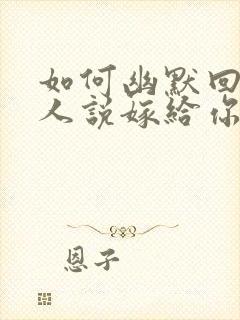 如何幽默回
人说嫁给你
恩子